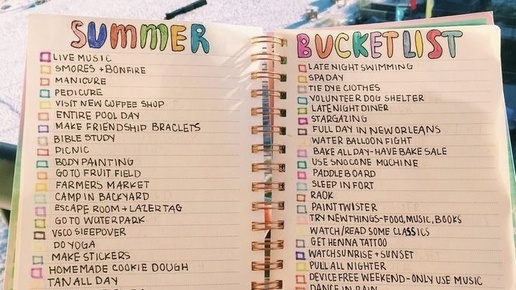 SUMMER
LIVE MUSIC
SMORES + BONFIRE
MANICURE
PEDICURE
VISIT NEW COFFEE SHOP
ENTIRE POOL DAY
MAKE FRIENDSHIP BRACLETS
BIBLE STUDY
PICNIC
BODY PAINTING
GO TO FRUIT FIELD
FARMERS MARKET
CAMP IN BACKYARD
ESCAPE ROOM + LAZER TAG
GO TO WATERPARK
VSCO SLEEPOVER
DO YOGA
MAKE STICKERS
HOMEMADE COOKIE DOUGH
TAN ALL DAY
BUCKET LIST
LATE NIGHT SWIMMING
SPA DAY
TIE DYE CLOTHES
VOLUNTEER DOG SHELTER
LATE NIGHT DINER
STARGAZING
FULL DAY IN NEW ORLEANS
WATER BALLOON FIGHT
BAKE ALL DAY-HAVE BAKE SALE
USE SNOCONE MACHINE
PADDLE BOARD
SLEEP IN FORT
RAOK
PAINT TWISTER
TRY NEW THINGS-FOOD, MUSIC, BOOKS
WATCH/READ SOME CLASSICS
GET HENNA TATTOO
WATCH SUNRISE + SUNSET
PULL ALL NIGHTER
DEVICE FREE WEEKEND-ONLY USE MUSIC
DANCE IN RAIN